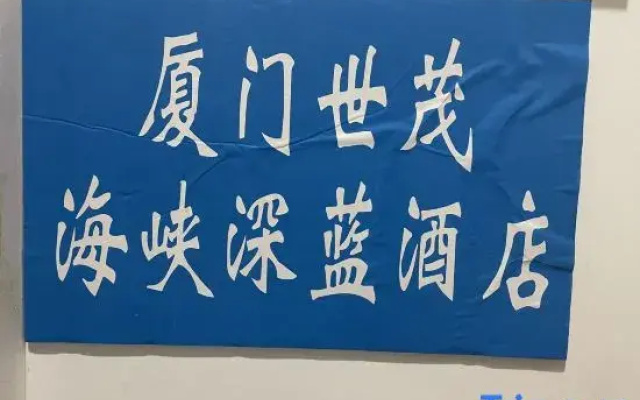 厦门世茂
海峡深蓝酒店